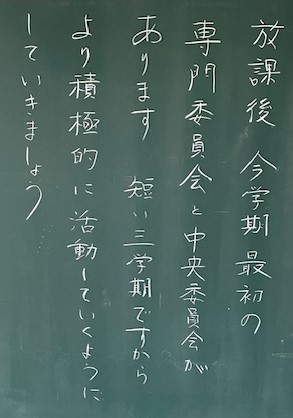 放課後 今学期最初の
専門委員会と中央委員会が
あります 短い三学期ですから
より積極的に活動していくように
していきましょう